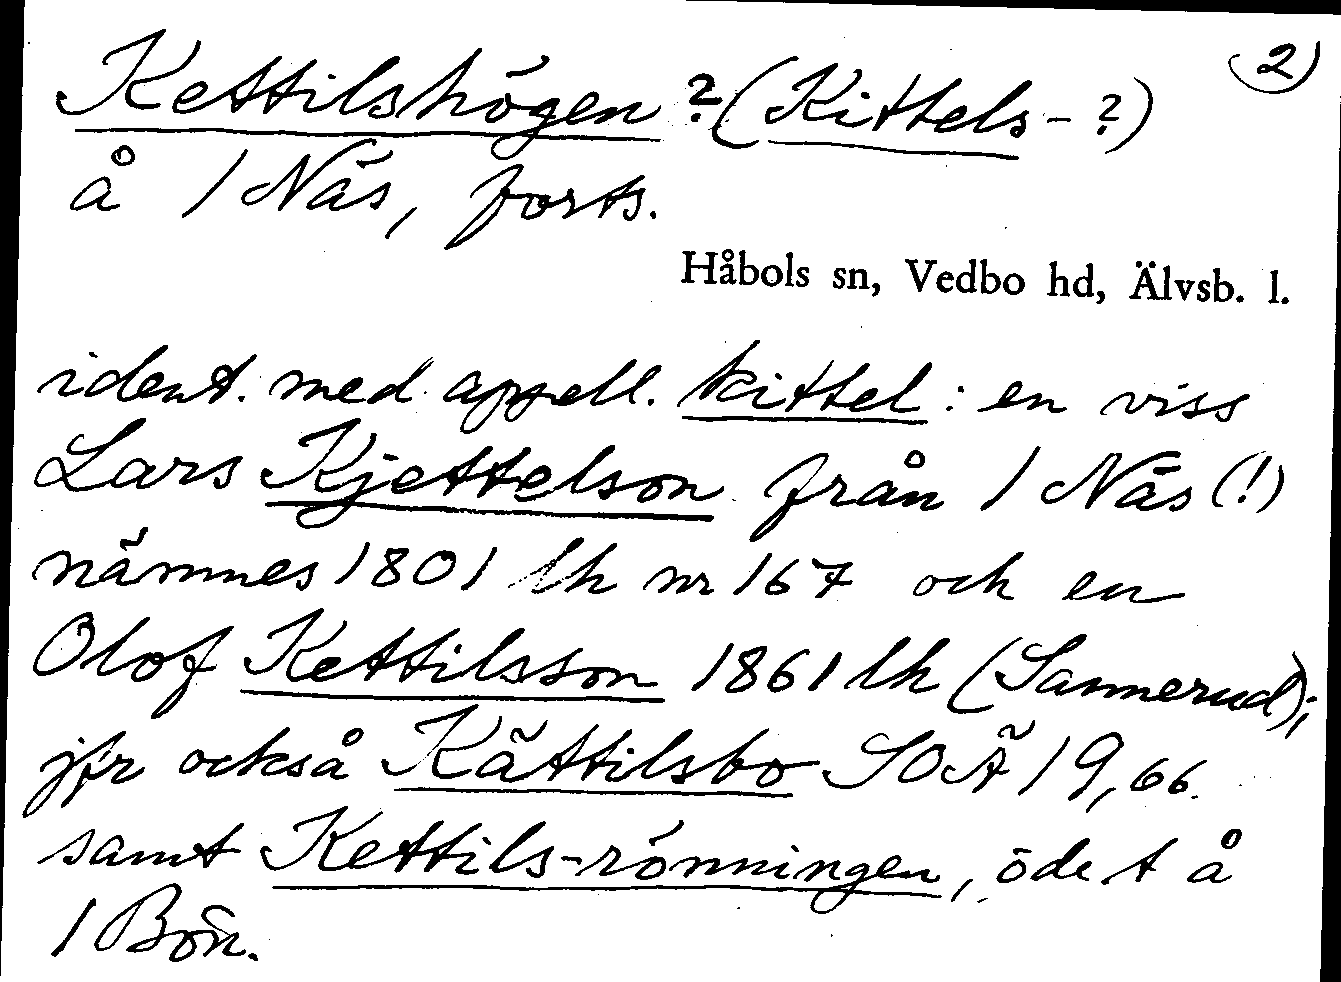 2)
Kettilshögen ? (Kittels- ?)
å 1 Näs, forts.
Håbols sn, Vedbo hd, Älvsb. l.
ident. med appell. kittel : en viss
Lars Kjettelson från 1 Näs (!)
nämnes 1801 lh nr 167 och en
Olof Kettilsson 1861 lh (Sannerud);
jfr också Kättilsbo SOÄ 19,66.
samt Kettils-rönningen, öde t å
1 Bön.